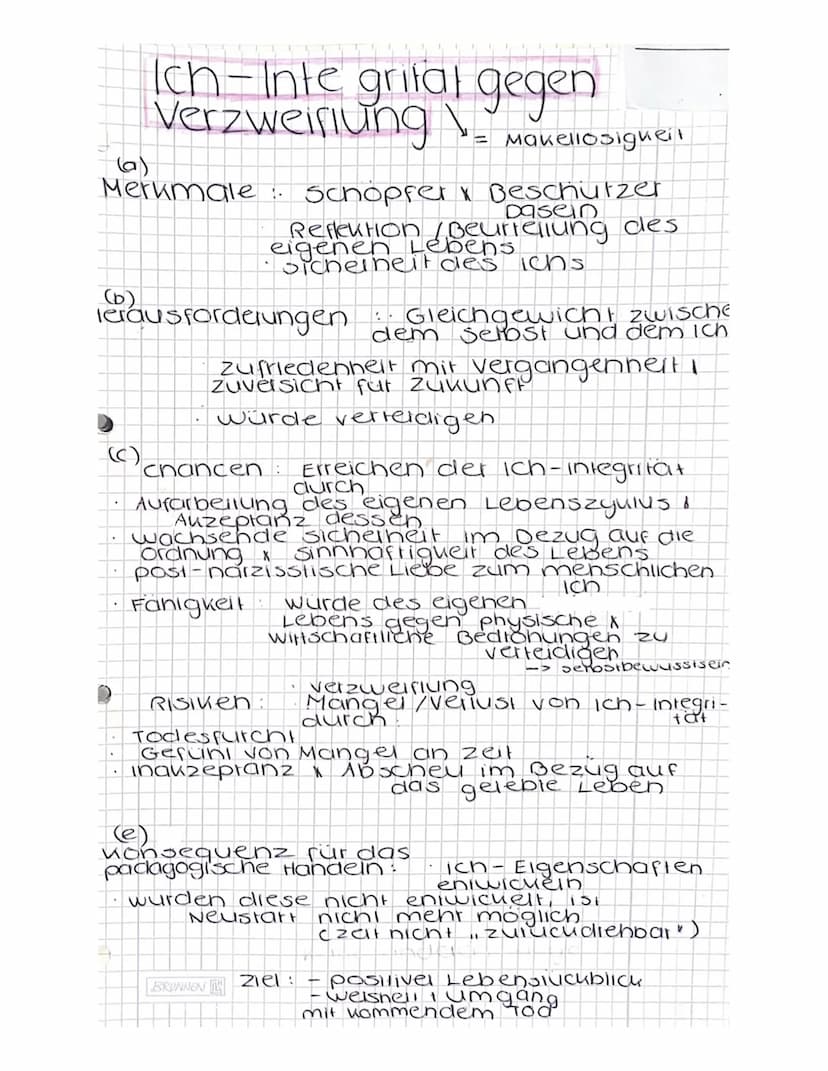 Ich-Integrität gegen
Verzweiflung ↘ = Makellosigkeit
(a)
Merkmale : · Schöpfer & Beschützer
Dasein
Reflektion / Beurteilung des
eigenen Lebens
· Sicherheit des Ichs
(b)
Herausforderungen : · Gleichgewicht zwische
dem Selbst und dem Ich
Zufriedenheit mit Vergangenheit &
Zuversicht für Zukunft
· Würde verteidigen
(c)
Chancen : Erreichen der Ich-Integrität
durch
· Aufarbeitung des eigenen Lebenszyklus &
Akzeptanz dessen
· wachsende Sicherheit im Bezug auf die
Ordnung & Sinnhaftigkeit des Lebens
· post-narzisstische Liebe zum menschlichen
Ich
· Fähigkeit : Würde des eigenen
Lebens gegen physische &
wirtschaftliche Bedrohungen zu
verteidigen
-> Selbstbewusstsein
· Verzweiflung
Risiken : Mangel / Verlust von Ich-Integri-
tät
durch :
· Todesfurcht
· Gefühl von Mangel an Zeit
· Inakzeptanz & Abscheu im Bezug auf
das gelebte Leben
(e)
Konsequenz für das
pädagogische Handeln : · Ich-Eigenschaften
entwickeln
· wurden diese nicht entwickelt, ist
Neustart nicht mehr möglich
(Zeit nicht „zurückdrehbar")
BRUNNEN
Ziel : - positiver Lebensrückblick
- Weisheit & Umgang
mit kommendem Tod